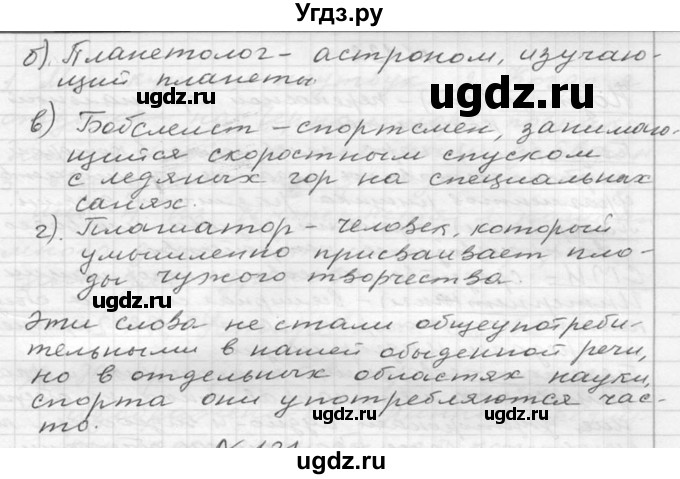 Угдз.ру
б). Планетолог - астроном, изучаю-
щий планеты
в) Бобслеист - спортсмен, занимаю-
щийся скоростным спуском
с ледяных гор на специальных
санях.
г). Плагиатор - человек, который
умышленно присваивает пло-
ды чужого творчества.
Эти слова не стали общеупотреби-
тельными в нашей обыденной речи,
но в отдельных областях науки,
спорта они употребляются час-
то.
ugdz.ru
ugdz.ru
ugdz.ru
ugdz.ru
ugdz.ru
ugdz.ru
ugdz.ru
ugdz.ru